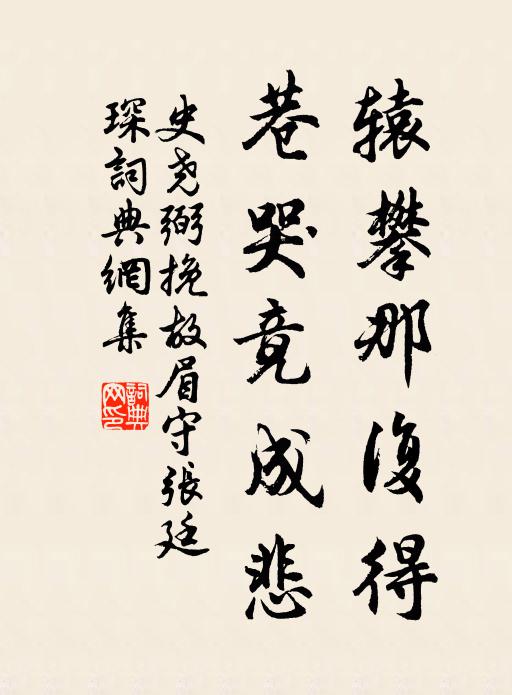 辕攀那復得
巷哭竟成悲
史尧弼挽故眉守張廷
琛詞典網集
詞典网印